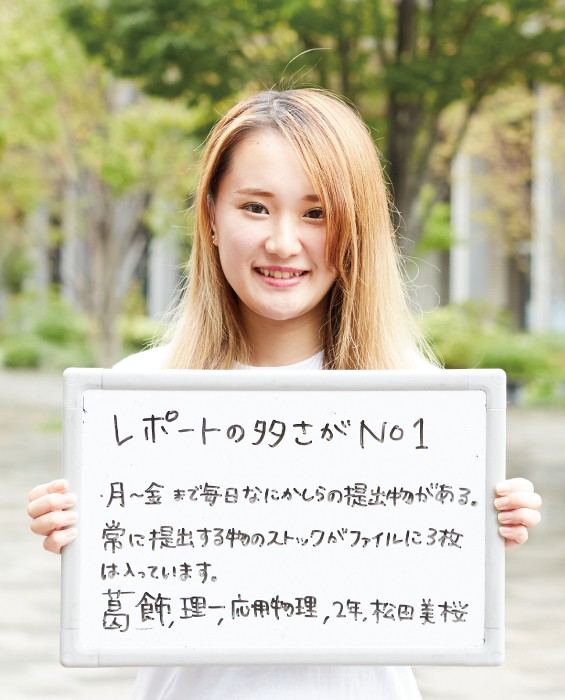 レポートの多さがNo1
・月〜金まで毎日なにかしらの提出物がある。
常に提出する物のストックがファイルに3枚
は入っています。
葛飾,理一,応用物理,2年,松田美桜